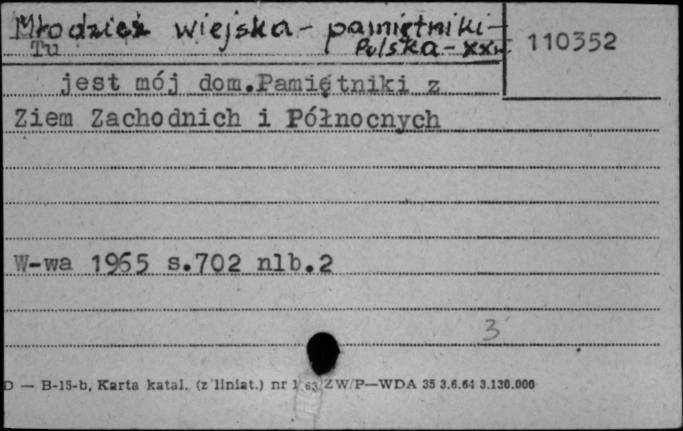 Młodzież wiejska - pamiętniki -
Polska - XX w.
Tu
110352
jest mój dom.Pamiętniki z
Ziem Zachodnich i Północnych
W-wa 1965 s.702 nlb.2
3
D — B-15-b, Karta katal. (z liniat.) nr 1 63 ZW/P—WDA 35 3.6.64 3.130.000